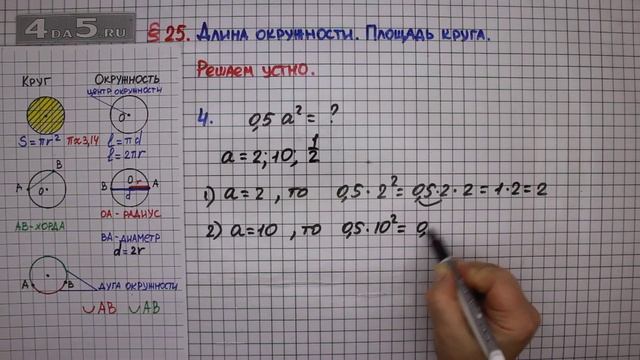 4DA5.RU
§ 25. Длина окружности. Площадь круга.
Решаем устно.
Круг
Окружность
центр окружности
O
S = πr² π≈3,14
l = πd
l = 2πr
A B O
B O r A d
AB-хорда
OA-радиус
BA-диаметр
d = 2r
A B
дуга окружности
∪AB ∪AB
4. 0,5 a² = ?
a = 2; 10; 1/2
1) a = 2, то 0,5 · 2² = 0,5 · 2 · 2 = 1 · 2 = 2
2) a = 10, то 0,5 · 10² = 0,